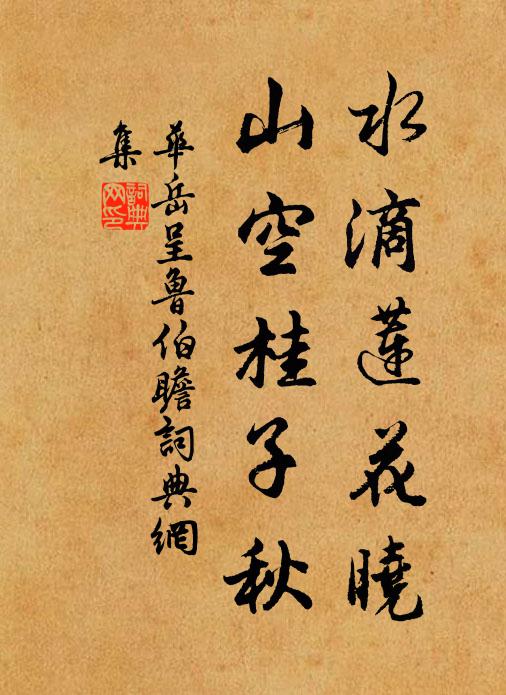 水滴蓮花曉
山空桂子秋
華岳呈魯伯瞻詞典網
集
詞典
网印